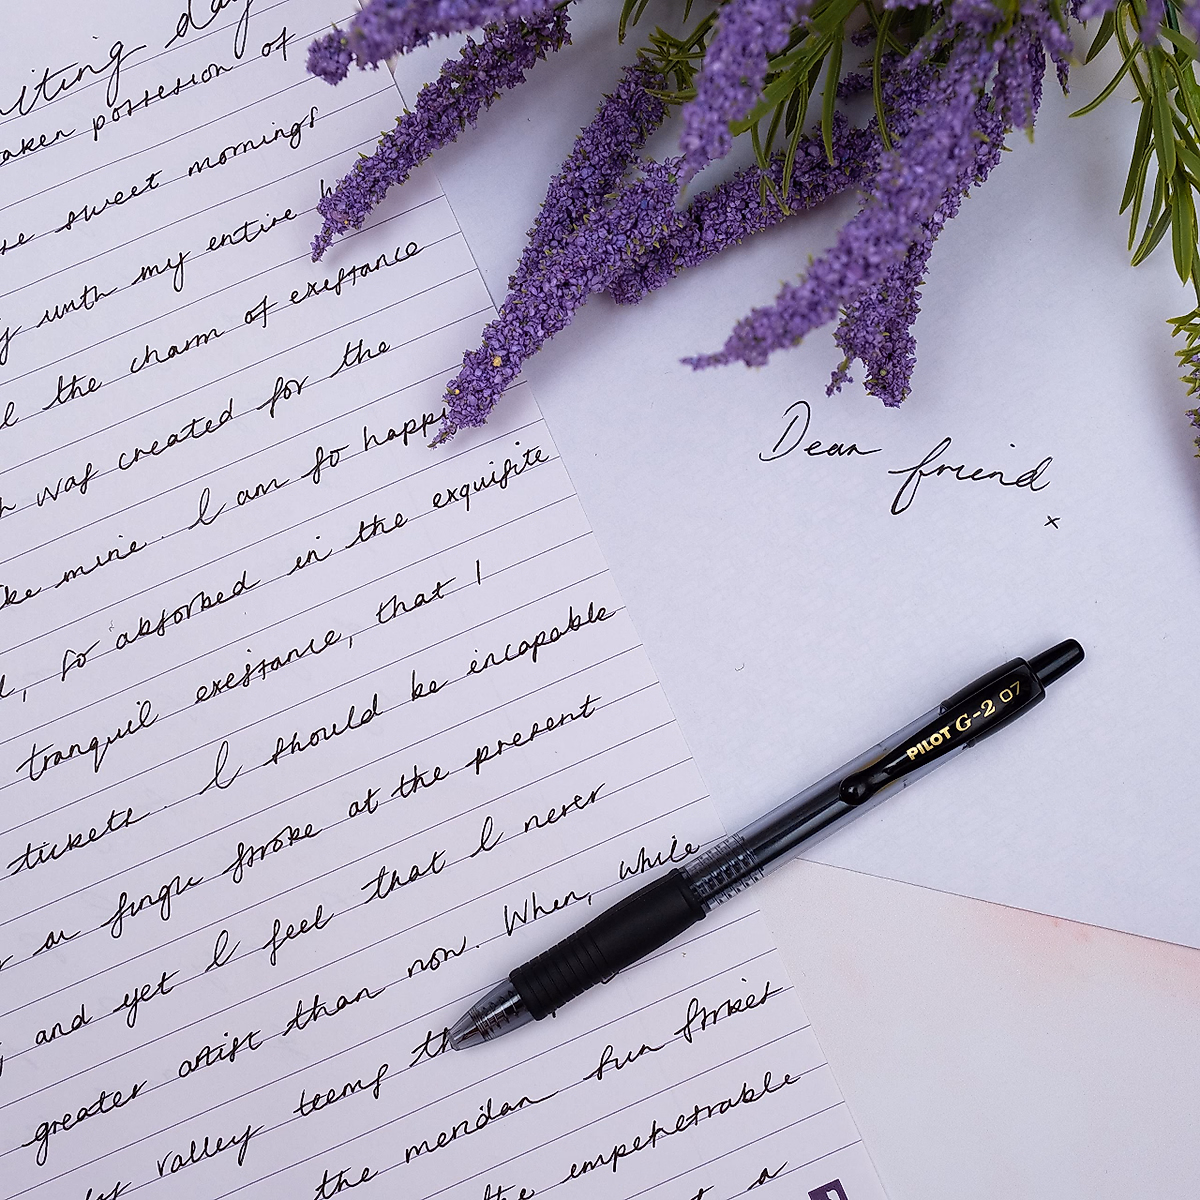 day
taken possession of
sweet mornings
with my entire
the charm of existance
was created for the
like mine. I am so happ
so absorbed in the exquisite
tranquil existance, that I
tickets. I should be incapable
a single stroke at the present
and yet I feel that I never
greater artist than now. When, while
valley teems th
the meridan sun strikes
the impenetrable
a
Dear friend
x
PILOT G-2 07